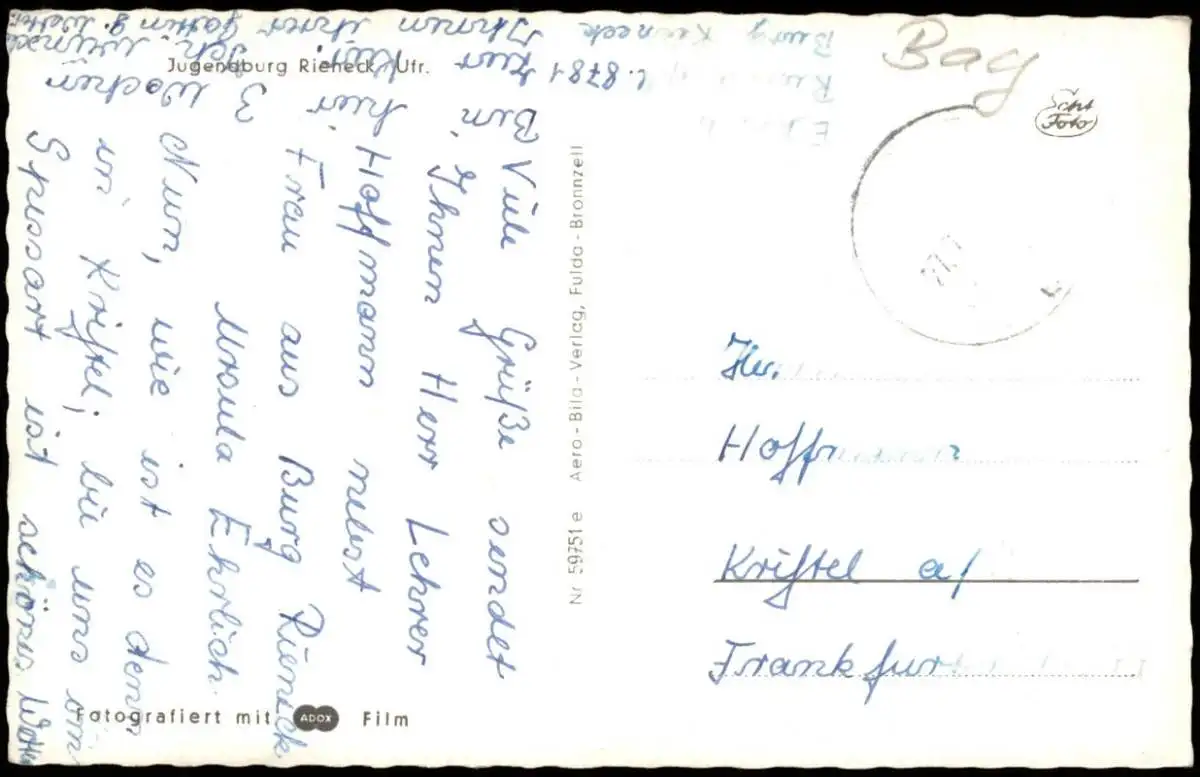 Jugendburg Rieneck Ufr.
Viele Grüße sendet
Ihnen Herr Lehrer
Hoffmann nebst
Frau aus Burg Rieneck
Ursula Ehrlich.
Nun, wie ist es denn
in Kriftel; bei uns im
Spessart ist schönes
Bin hier 3 Wochen
zur Kur. Ich
Ihnen Ihrer
8781
Burg Rieneck
Bag
Echt
Foto
27.7
Nr 59751 e Aero-Bild-Verlag, Fulda-Bronnzell
Hr.
Hoffmann
Kriftel a/
Frankfurt
Fotografiert mit ADOX Film